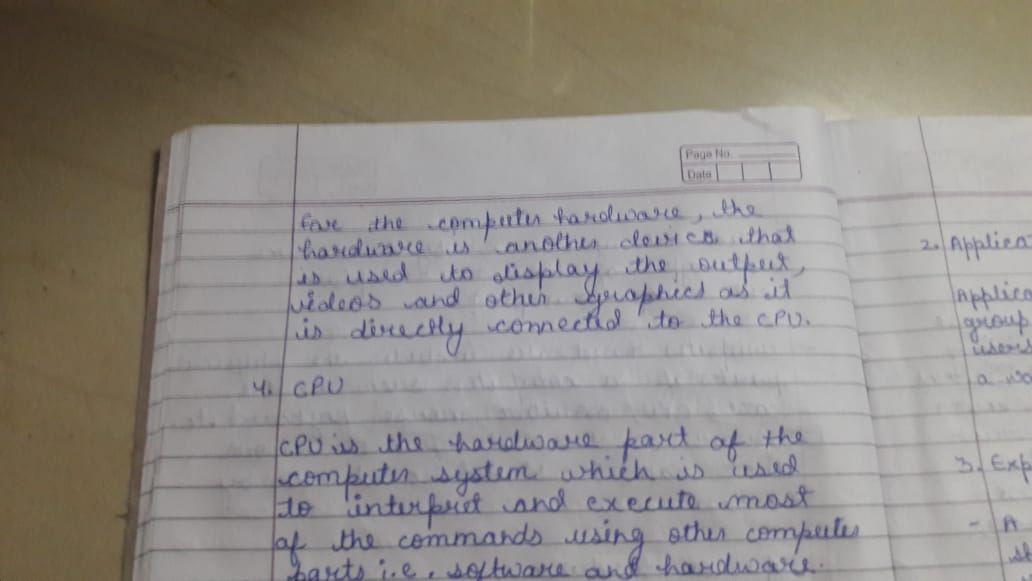 Page No.
Date
for the computer hardware, the
hardware is another device that
is used to display the output,
videos and other graphics as it
is directly connected to the CPU.
4. CPU
CPU is the hardware part of the
computer system which is used
to interpret and execute most
of the commands using other computer
parts i.e. software and hardware.
2. Applica
Applica
group
users
a wo
3. Exp
- A